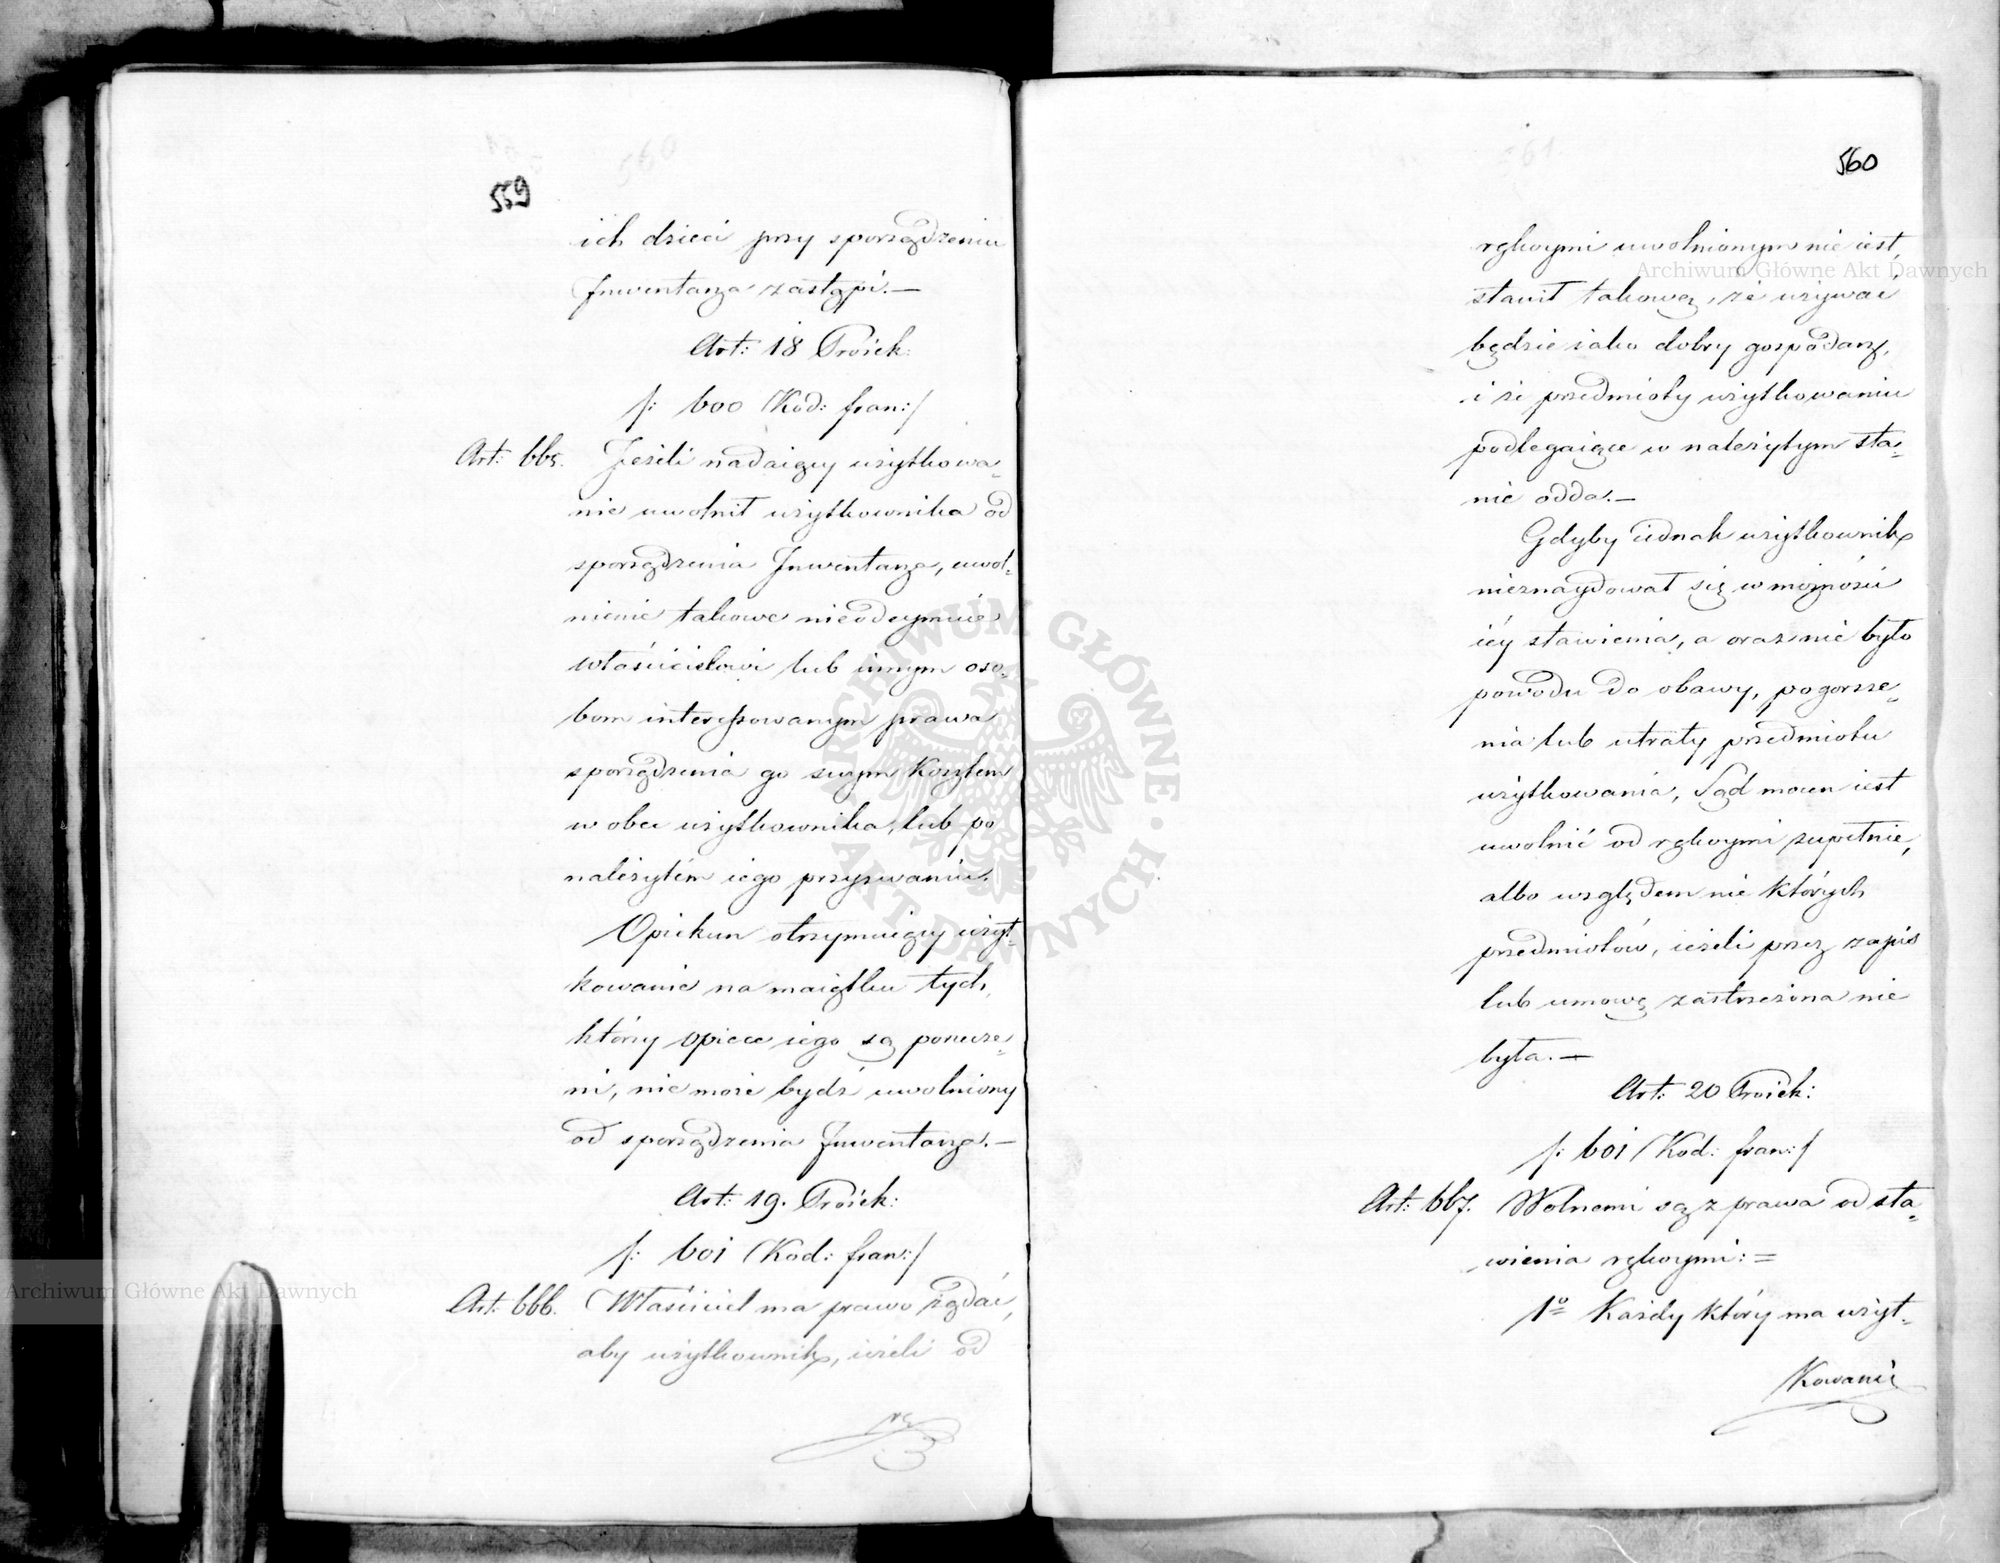 559
ich dzieci przy sporządzeniu
Inwentarza zastąpi.—
Art: 18 Proiek:
/: 600 Kod: fran:/
Art: 665. Jeżeli nadaiący użytkowa-
nie uwolnił użytkownika od
sporządzenia Inwentarza, uwol-
nienie takowe nieodeymuie
właścicielowi lub innym oso-
bom interessowanym prawa
sporządzenia go swym kosztem
w obec użytkownika, lub po
należytém iego przyzwaniu.
Opiekun otrzymuiący użyt-
kowanie na maiątku tych,
którzy opiece iego są powierze-
ni, nie może bydź uwolniony
od sporządzenia Inwentarza.—
Art: 19. Proiek:
/: 601 Kod: fran:/
Art: 666. Właściciel ma prawo żądać,
aby użytkownik, ieżeli od
rę
560
rękoymi uwolnionym nie iest,
stawił takową, że używać
będzie iako dobry gospodarz,
i że przedmioty użytkowaniu
podlegaiące w należytym sta-
nie odda.—
Gdyby iednak użytkownik
nieznaydował się w możności
iéy stawienia, a oraz nie było
powodu do obawy, pogorsze-
nia lub utraty przedmiotu
użytkowania, Sąd mocen iest
uwolnić od rękoymi zupełnie,
albo względem nie których
przedmiotów, ieżeli przez zapis
lub umowę zastrzeżona nie
była.—
Art: 20 Proiek:
/: 601 Kod: fran:/
Art: 667. Wolnemi są z prawa od sta-
wienia rękoymi: =
1o Każdy który ma użyt-
kowanie
Archiwum Główne Akt Dawnych
Archiwum Główne Akt Dawnych
ARCHIWUM GŁÓWNE AKT DAWNYCH